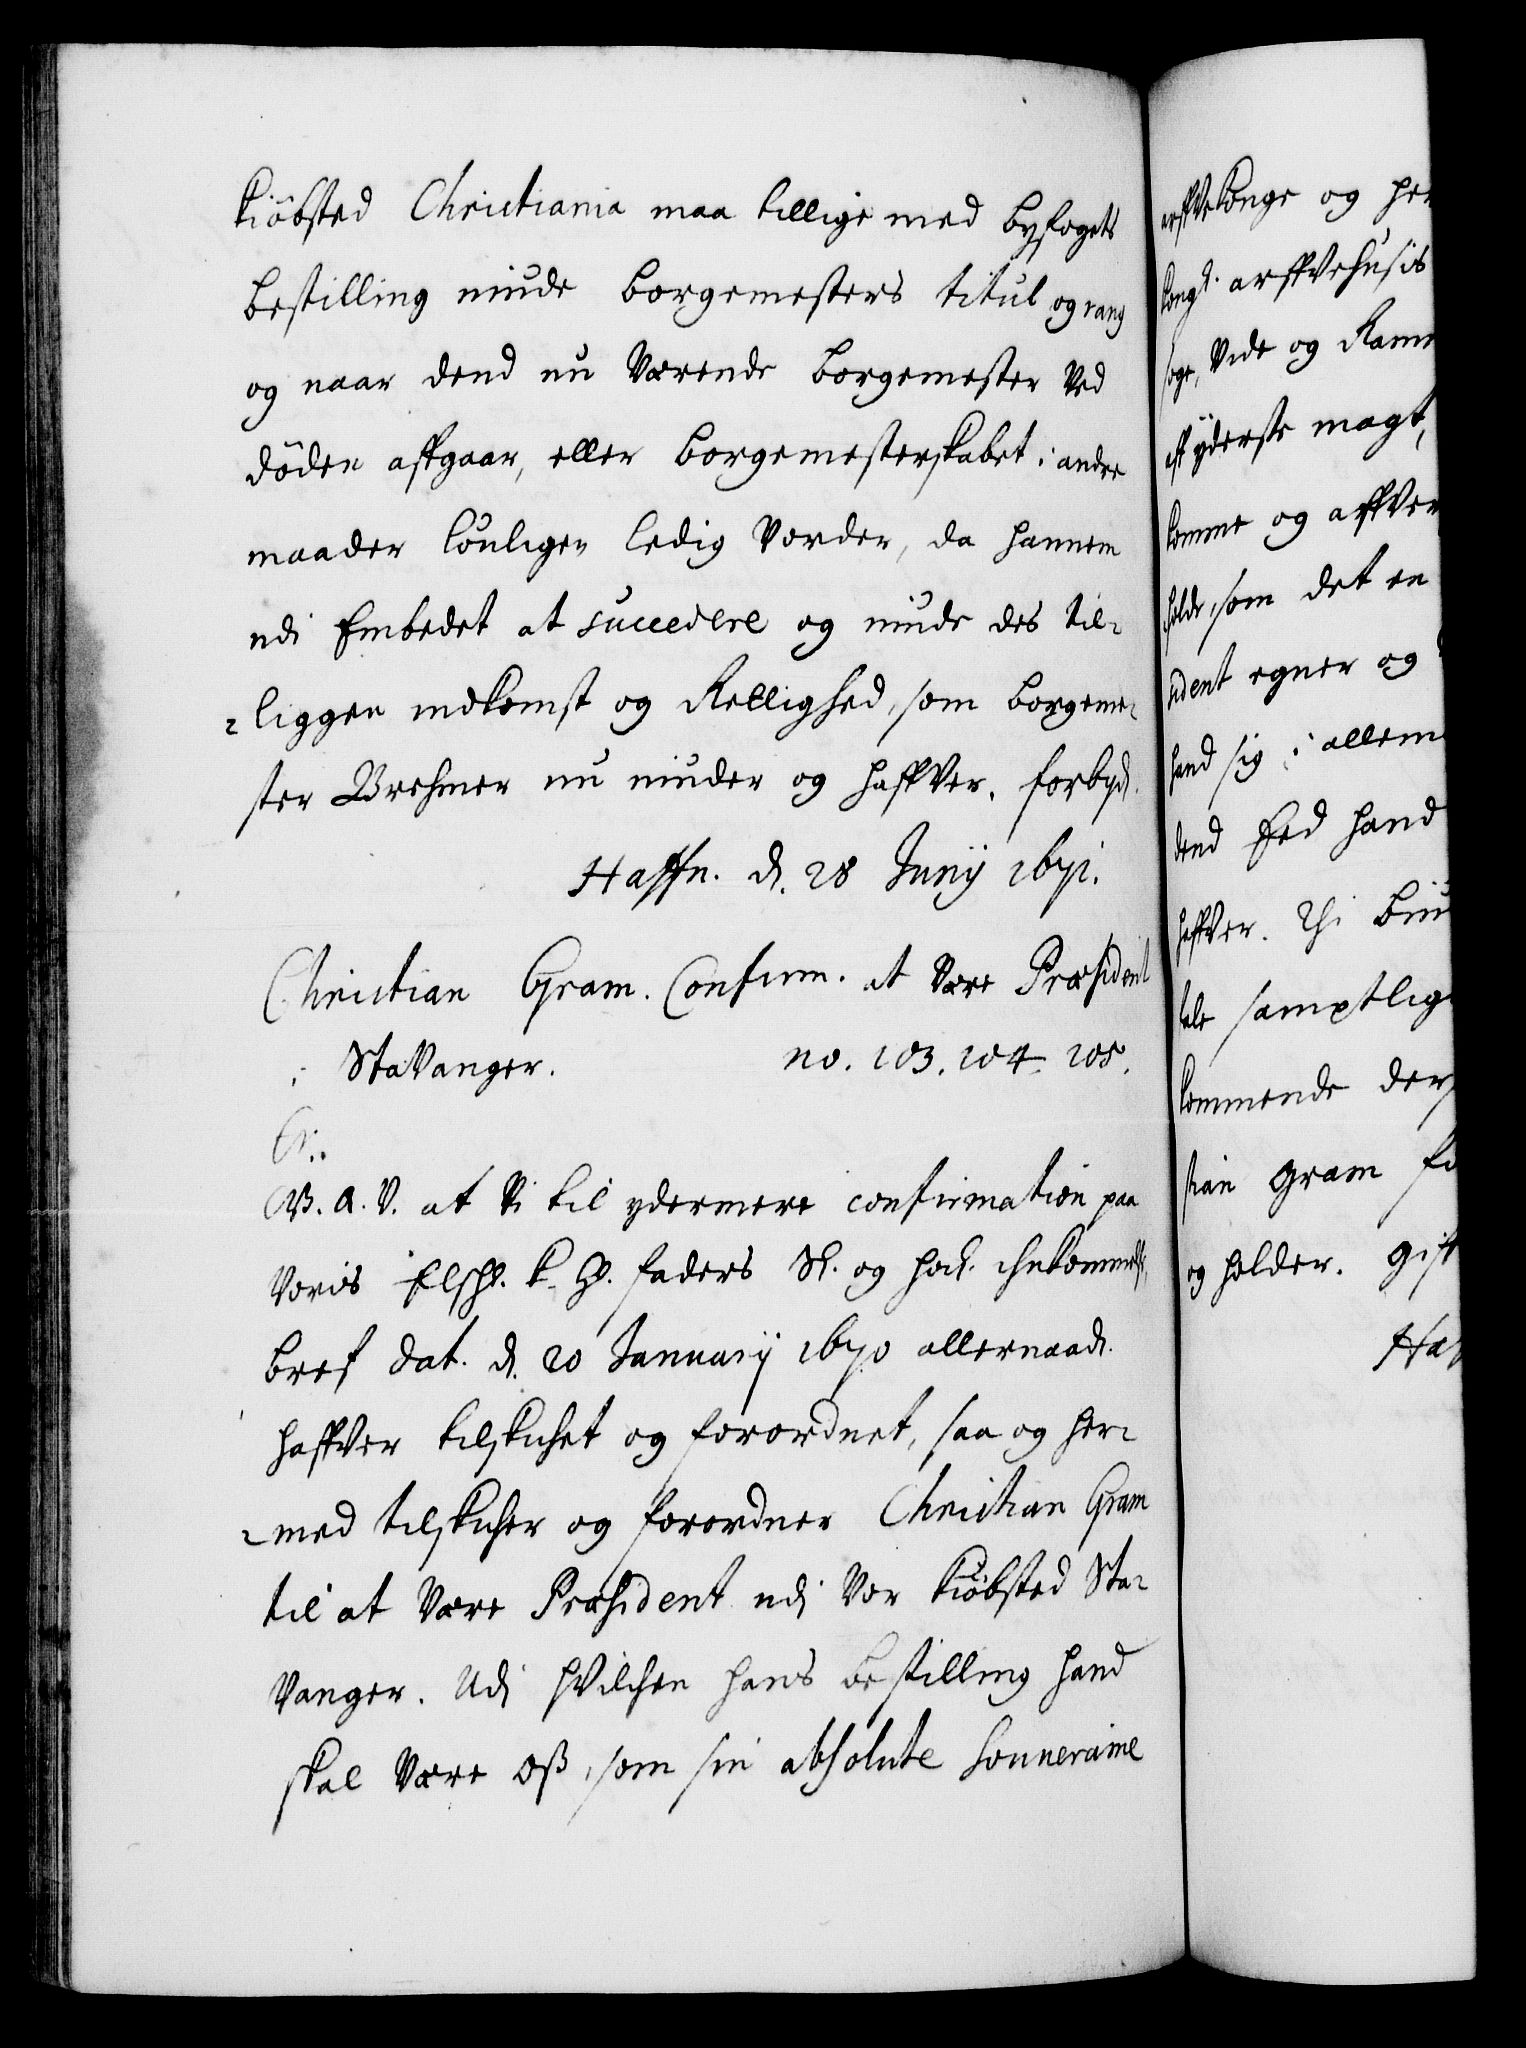 kiöbsted Christiania maa tillige med byfogets
bestilling niude borgemesters titul og rang
og naar dend nu Værende borgemester Ved
döden affgaar, eller borgemesterskabet i andre
maader louligen ledig Vorder, da hannem
udi Embedet at succedere og niude des til-
liggen indkomst og Rettighed, som borgeme-
ster Brehmer nu niuder og haffver. forbyd.
Haffn. d. 28 Junij 1671.
Christian Gram. Confirm. at Være Præsident
i StaVanger. no. 103. 104. 105.
C5.
G. A. V. at Vi til ydermere confirmation paa
Voris Elsch. k. H. faders Sl. og hocl. ihukommelse,
bref dat. d. 20 Januarij 1670 allernaad.
haffver tilskichet og forordnet, saa og her-
med tilskicher og forordner Christian Gram
til at Være Præsident udi Vor kiöbsted Sta-
Vanger. Udi hVilchen hans bestilling hand
skal Være Oß, som sin absolute souveraine
arffVekonge og her
kongl. arffvehusis
söge, Vide og Ramm
aff yderste magt,
komme og affver
holde, som det en
sident egner og
hand sig i allem
dend Eed hand
haffver. Thi biu
tale samptlig
kommende der
stian Gram fo
og holder. Gift
Haf